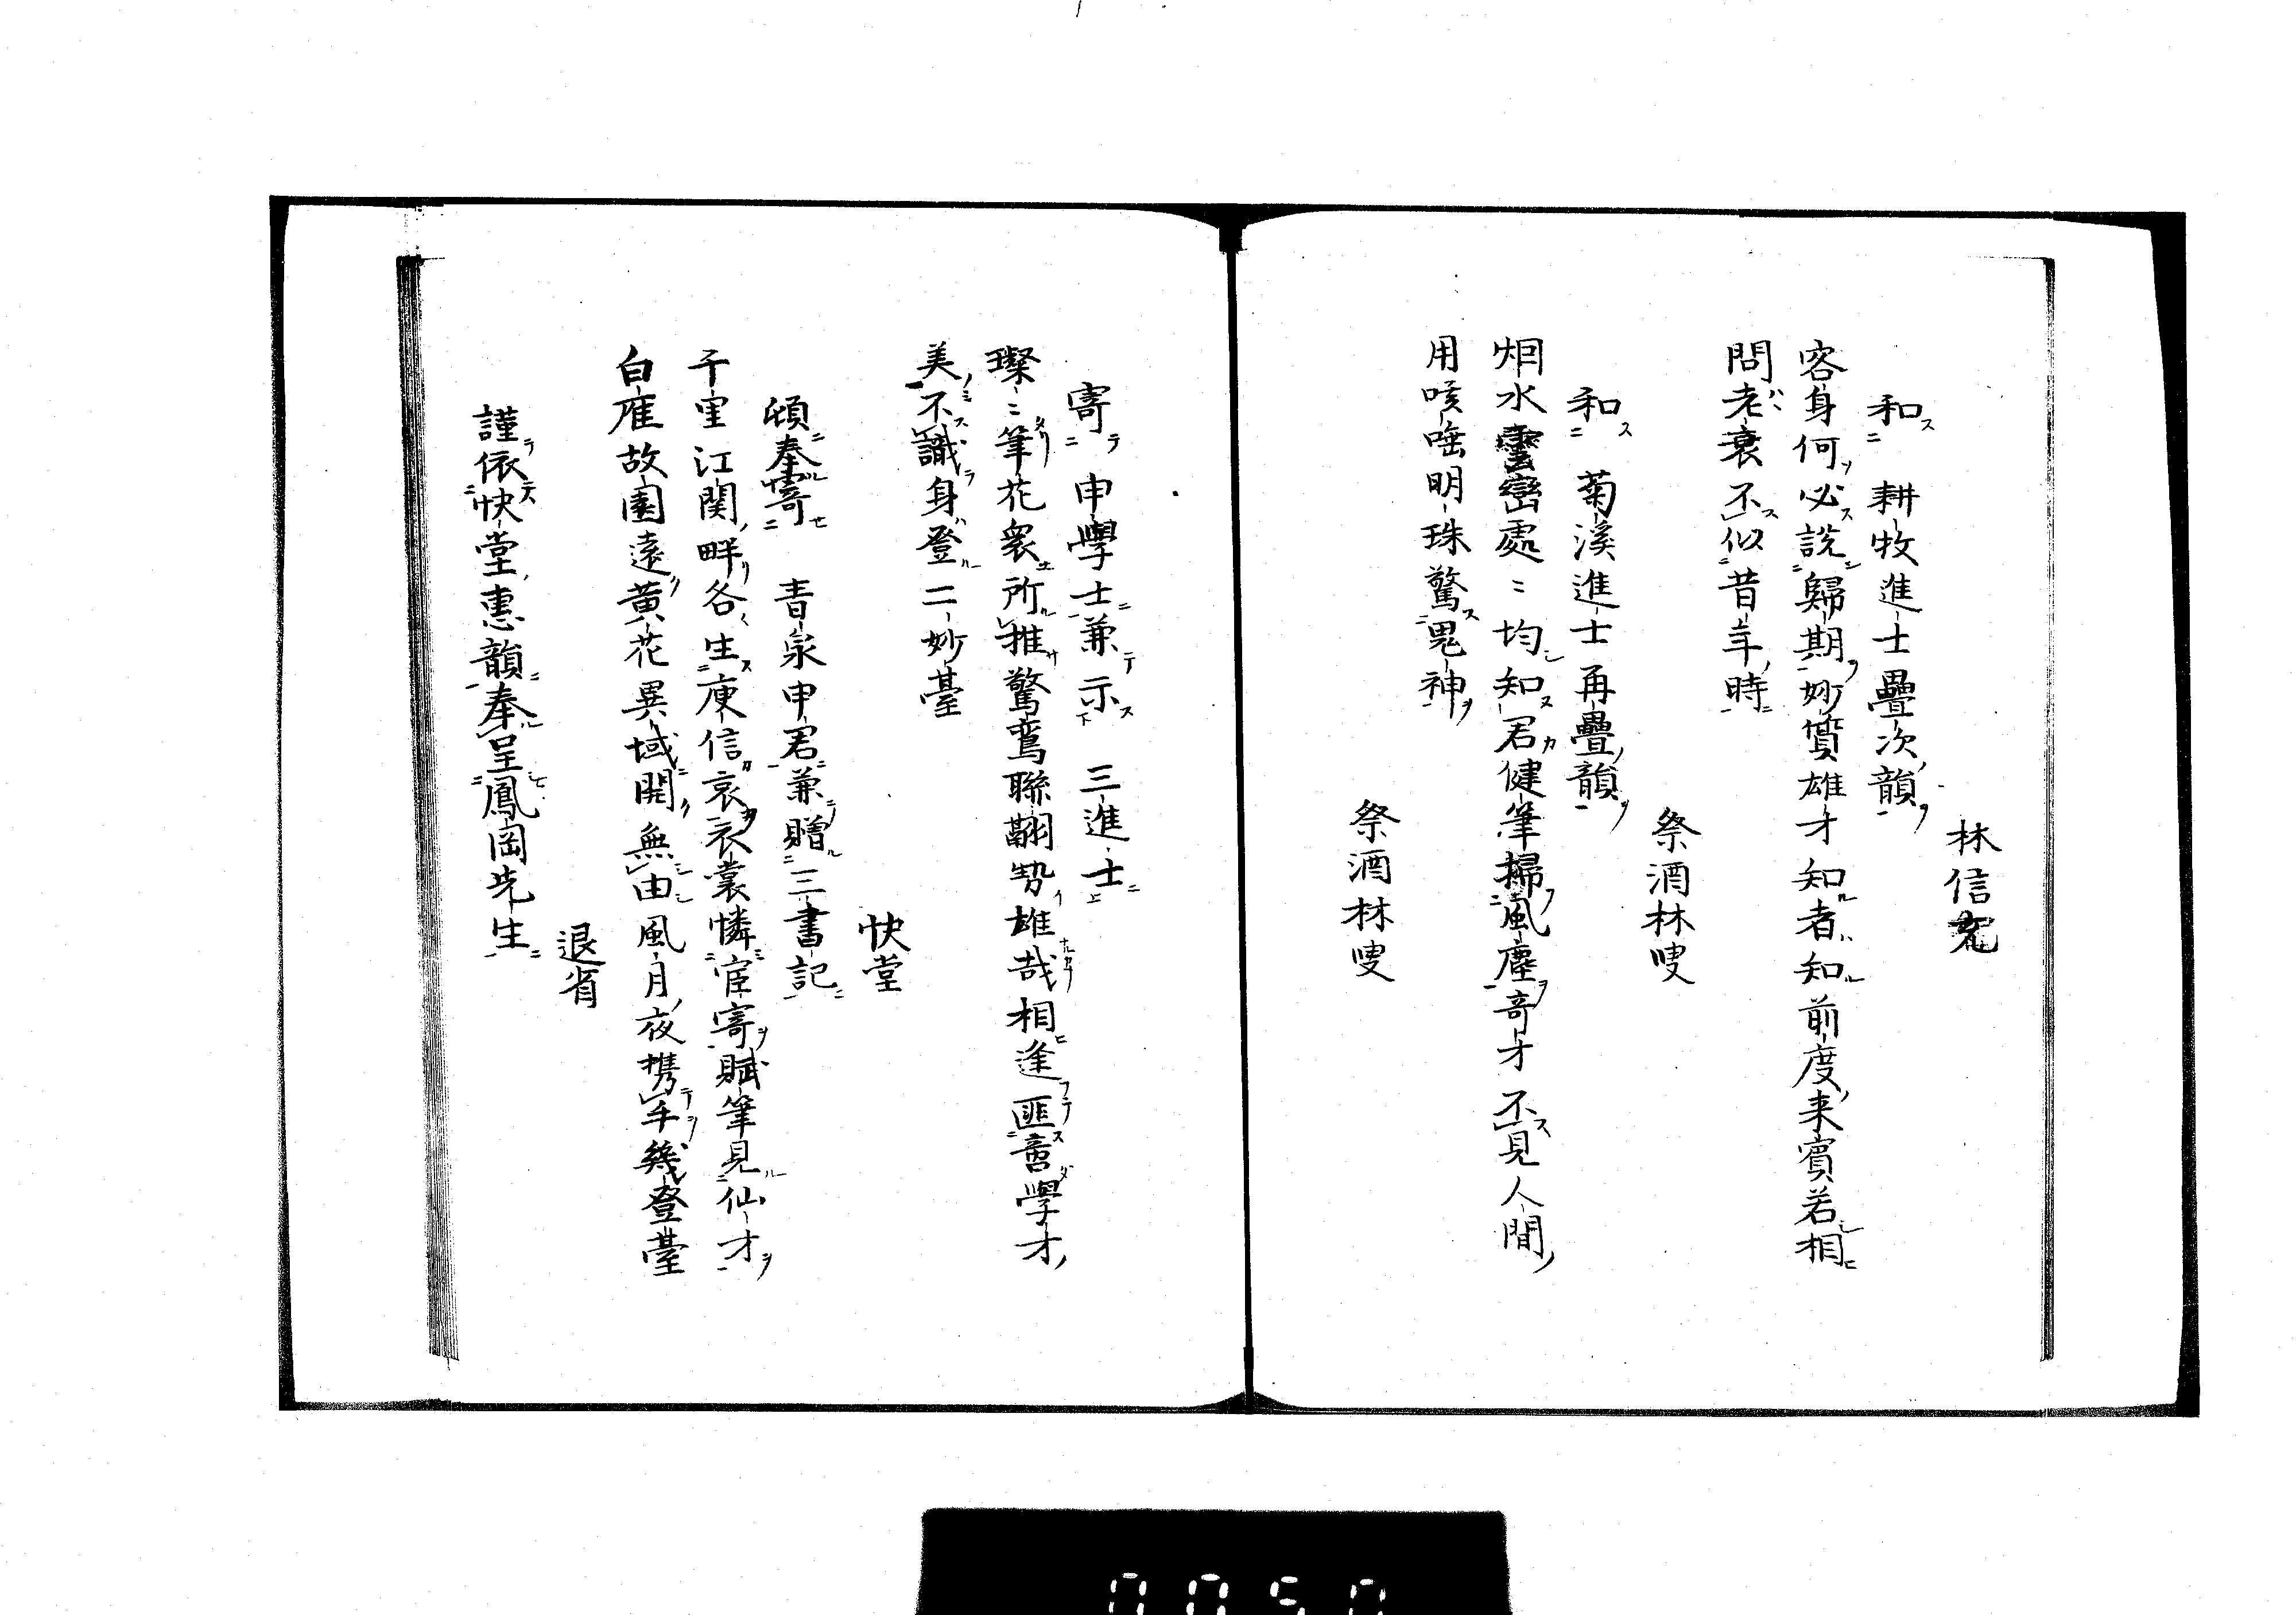 林信充
和耕牧進士疊次韻
客身何必說歸期妙質雄才知者知前度来賓若相
問老衰不似昔年時
祭酒林叟
和菊溪進士再疊韻
烟水雲巒處〻均知君健筆掃風塵奇才不見人間
用咳唾明珠驚鬼神
祭酒林叟
寄申學士兼示三進士
璨〻筆花衆所推驚鸞聯翩勢雄哉相逢匪啻學才
美不識身登二妙臺
快堂
頎奉寄青泉申君兼贈三書記
千里江関畔各生庾信哀衣裳憐宦寄賦筆見仙才
白雁故園遠黄花異域開無由風月夜携手幾登臺
退省
謹依快堂恵韻奉呈鳳岡先生
0050